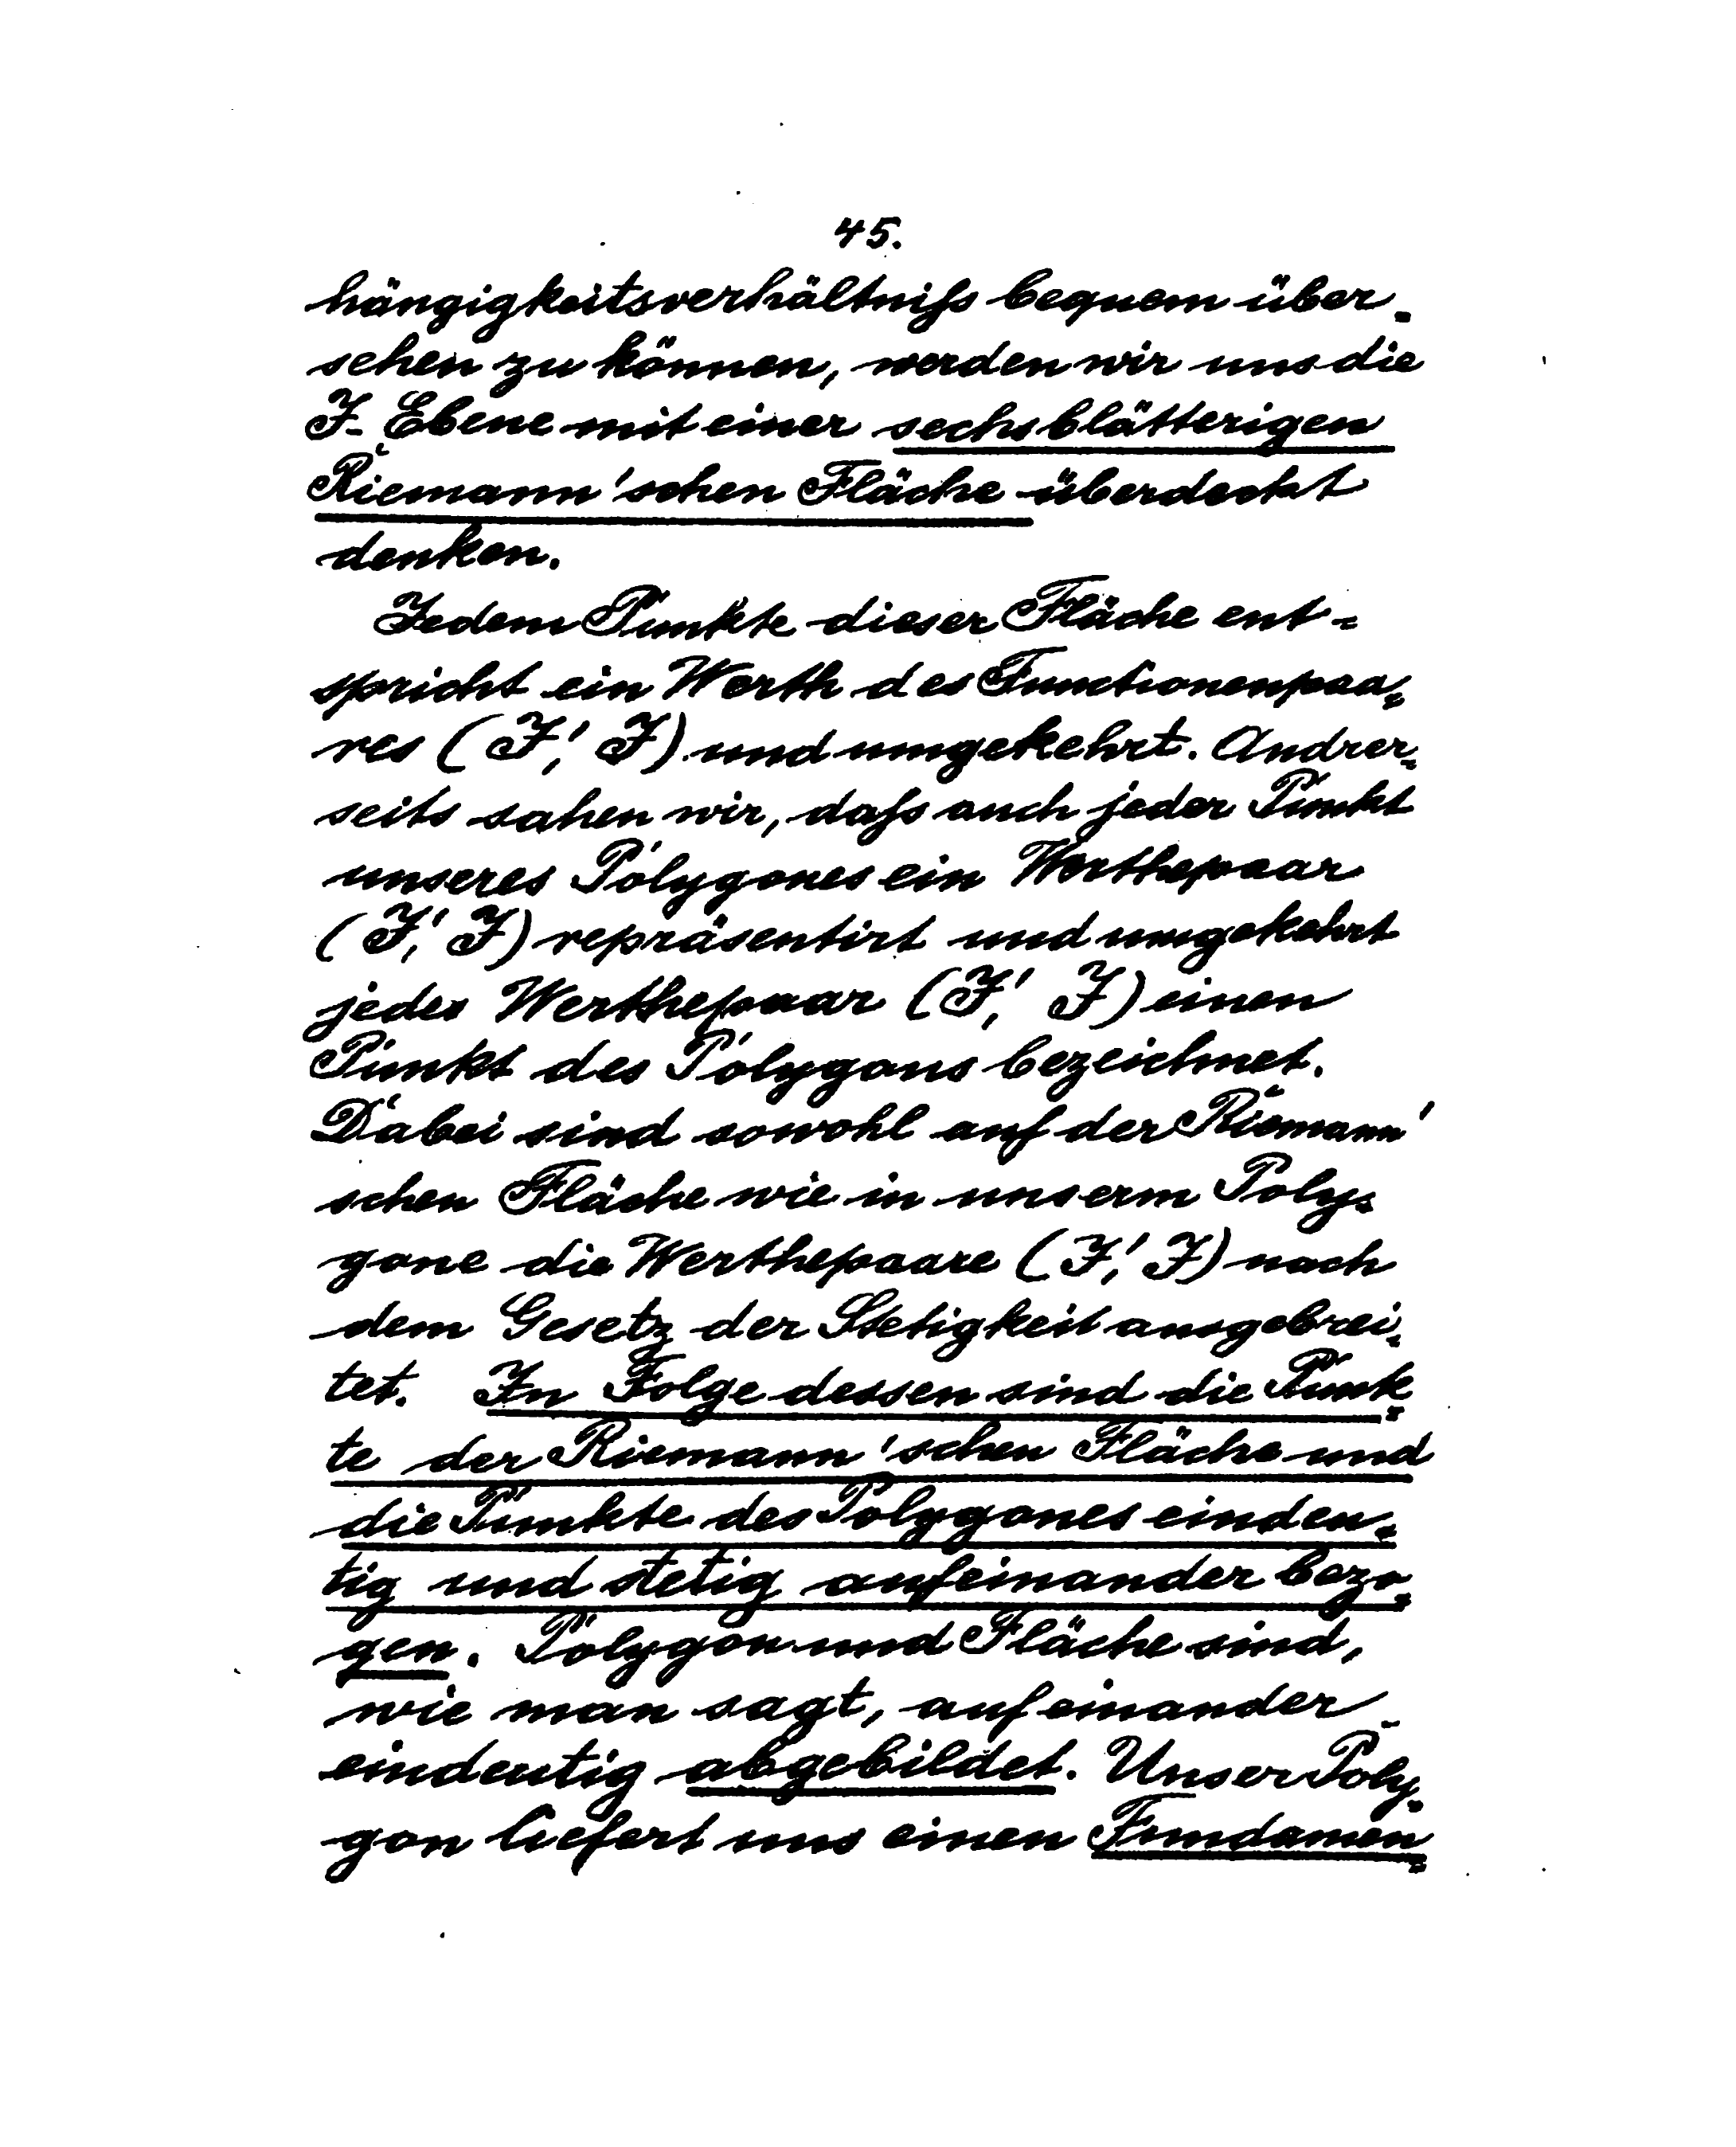 45.
hängigkeitsverhältniſs bequem über-
sehen zu können, werden wir uns die
J-Ebene mit einer sechsblätterigen
Riemann'schen Fläche überdeckt
denken.
Jedem Punkte dieser Fläche ent-
spricht ein Werth des Functionenpaa-
res (J', J) und umgekehrt. Andrer-
seits sahen wir, daſs auch jeder Punkt
unseres Polygones ein Werthepaar
(J', J) repräsentirt und umgekehrt
jedes Werthepaar (J', J) einen
Punkt des Polygons bezeichnet.
Dabei sind sowohl auf der Riemann'
schen Fläche wie in unserm Poly-
gone die Werthepaare (J', J) nach
dem Gesetz der Stetigkeit ausgebrei-
tet. In Folge dessen sind die Punk-
te der Riemann'schen Fläche und
die Punkte des Polygones eindeu-
tig und stetig aufeinander bezo-
gen. Polygon und Fläche sind,
wie man sagt, aufeinander
eindeutig abgebildet. Unser Poly-
gon liefert uns einen Fundamen-